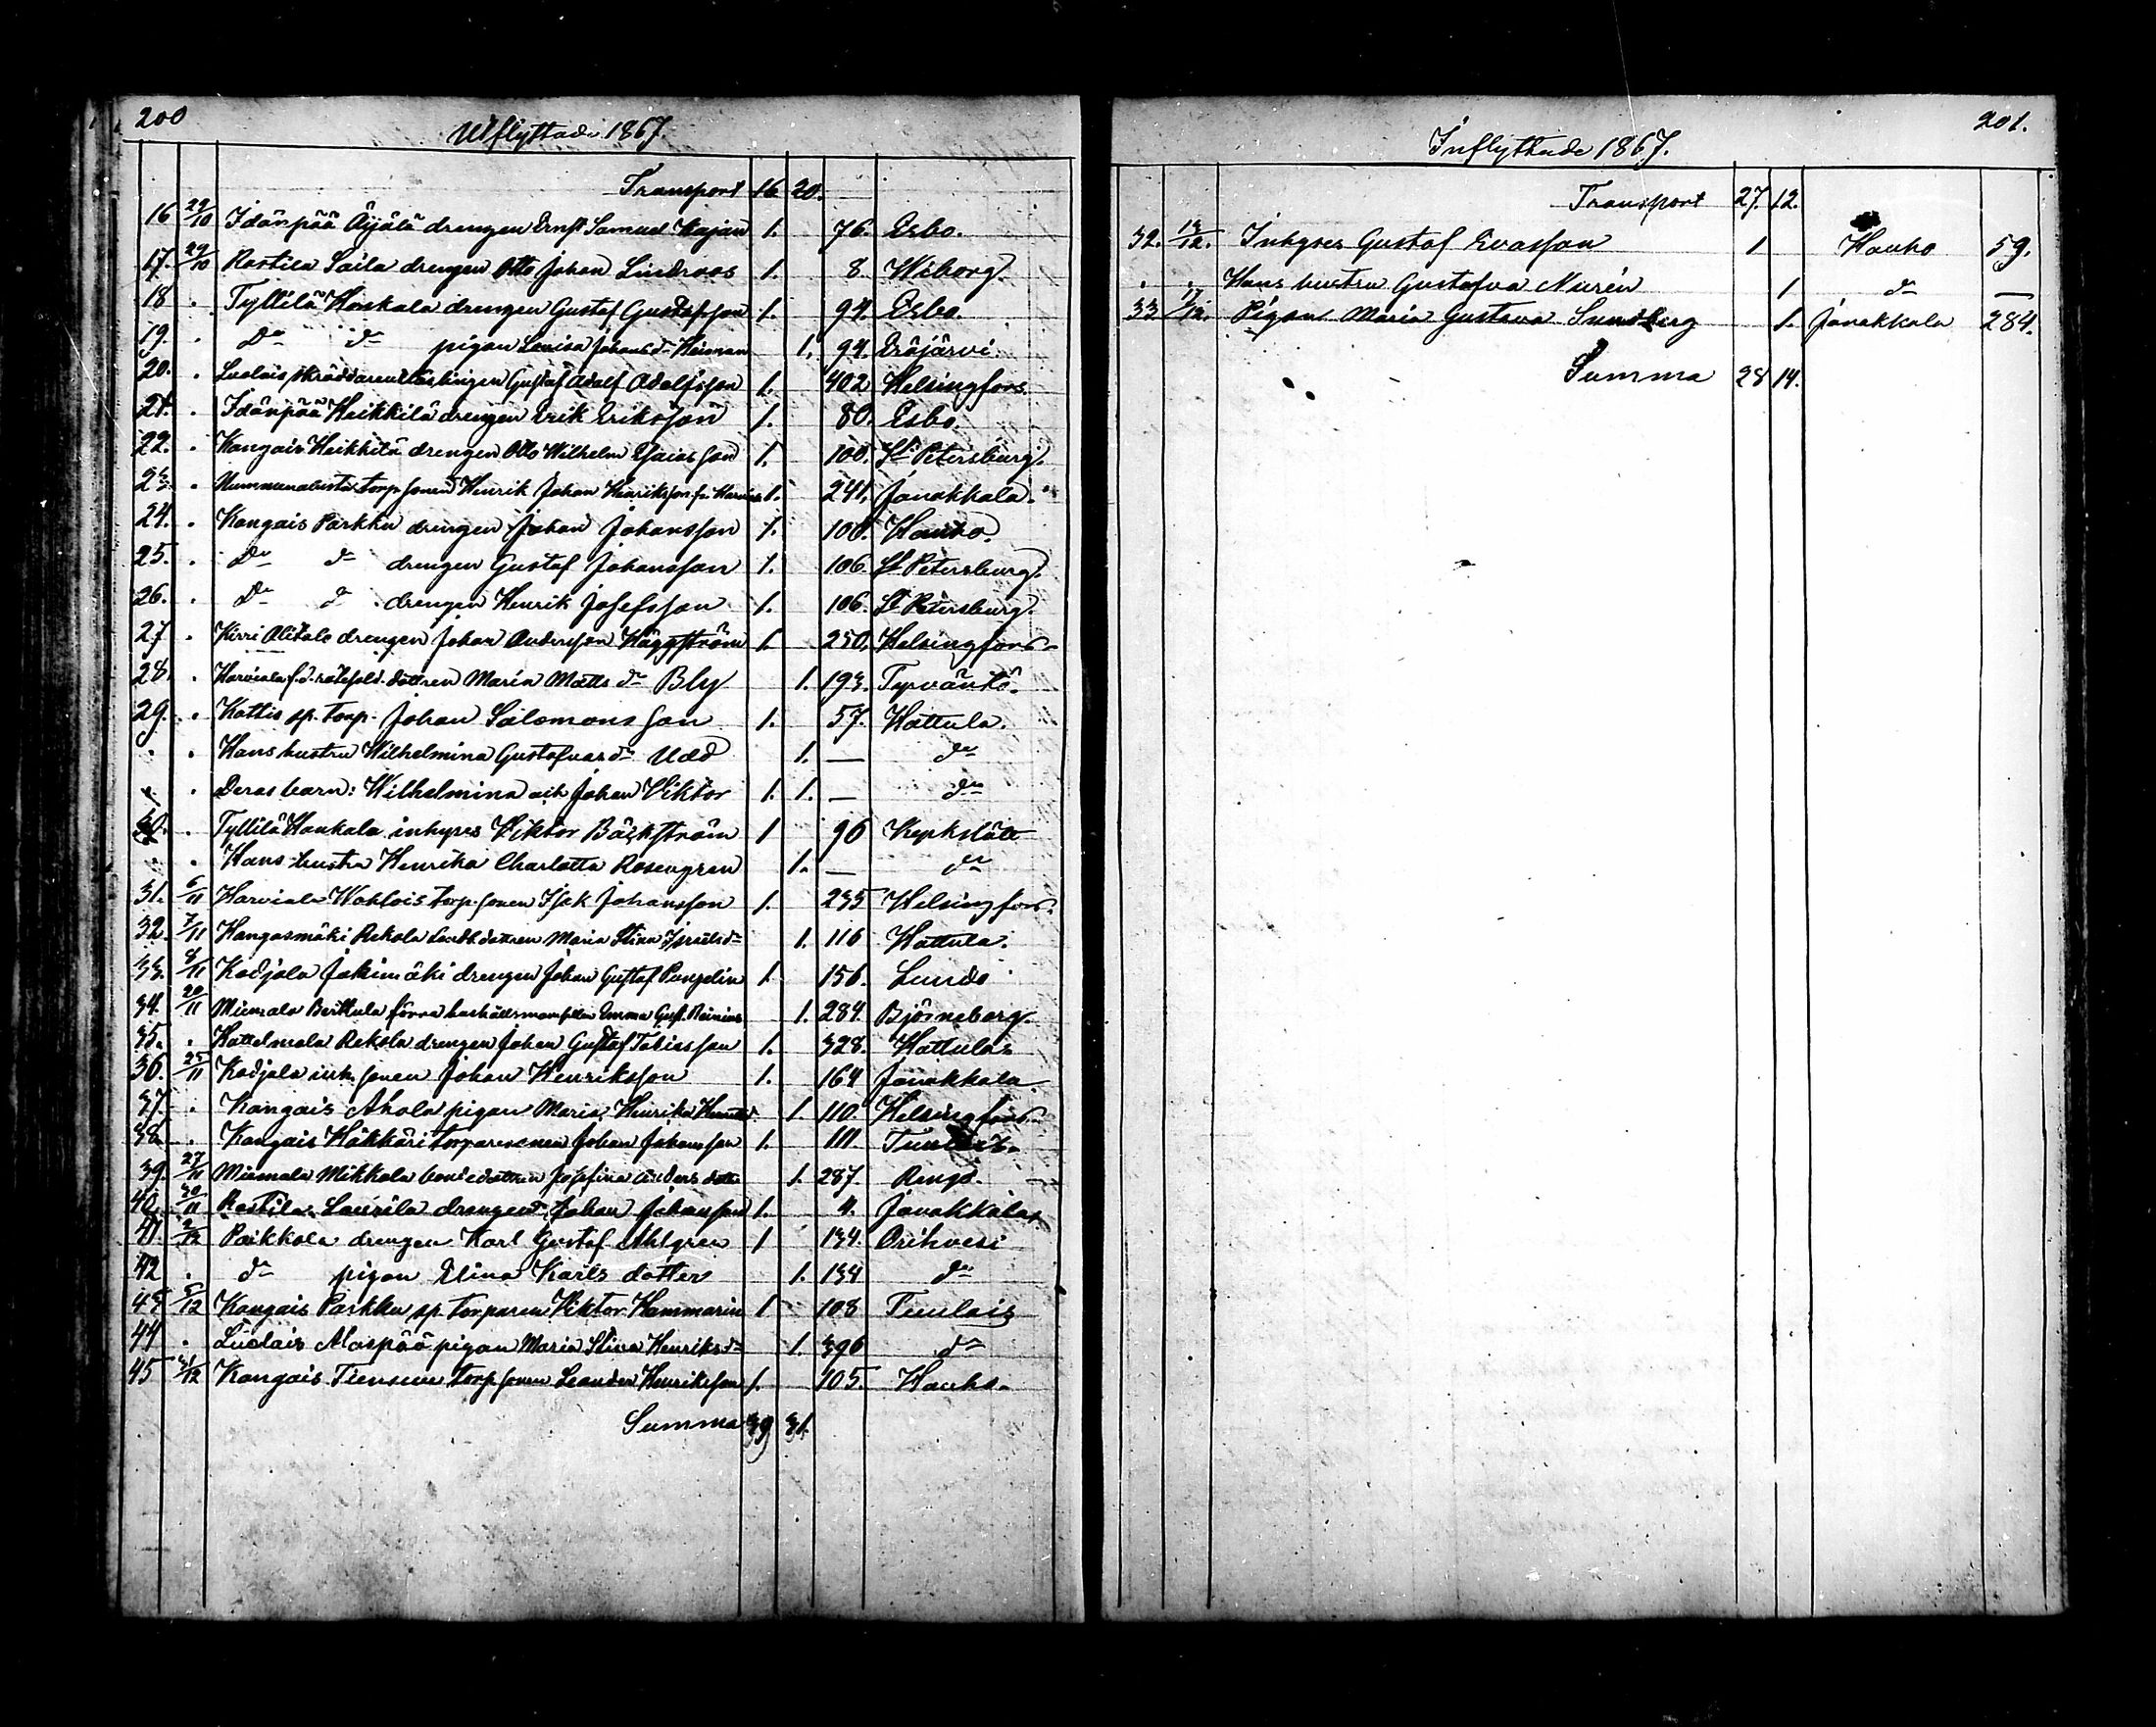 200
Utflyttade 1867.
Transport 16 20.
16 29/10 Idänpää Äijälä drengen Ernst Samuel Kajan 1. 76. Esbo.
17. 29/10 Rastila Saila drengen Otto Johan Lindroos 1. 8. Wiborg.
18 . Tyllilä Haukala drengen Gustaf Gustafsson 1. 94. Esbo
19. . Do do pigan Lovisa Johansdr 1. 94. Eräjärvi.
20. . Luolais skräddarelärlingen Gustaf Adolf Adolfsson 1. 402 Helsingfors.
21. . Idänpää Heikkilä drengen Erik Eriksson 1. 80. Esbo.
22. . Kangais Heikkilä drengen Otto Wilhelm Esaiasson 1. 100. St Petersburg.
23. . torp.sonen Henrik Johan Henriksson 1. 241. Janakkala.
24. . Kangais Parkku drengen Johan Johansson 1. 106. Hauho.
25. . Do do drengen Gustaf Johansson 1. 106. St Petersburg.
26. . Do do drengen Henrik Josefsson 1. 106. St Petersburg.
27. . Kirri Alitalo drengen Johan Andersson Häggström 1. 250. Helsingfors.
28. . Harviala f.d. dottren Maria Matts dr Bly 1. 193. Tyrväntö.
29. . Kattis sp. torp. Johan Salomonsson 1. 57. Hattula.
. . Hans hustru Wilhelmina Gustafvasdr Udd 1. — do
. . Deras barn: Wilhelmina och Johan Viktor 1. 1. — do
30. . Tyllilä Haukala inhyses Viktor Bäckström 1 96 Kyrkslätt
. . Hans hustru Henrika Charlotta Rosengren 1. — do
31. 6/11 Harviala Wahlois torp.sonen Isak Johansson 1. 235 Helsingfors.
32. 7/11 Kangasmäki Rekola Landb.dottren Maria Stina Israelsdr 1. 116 Hattula.
33. 8/11 Kadjala Jakimäki drengen Johan Gustaf 1. 156. Lundo
34. 20/11 Miemala Berttula förra hushållsmamsellen Emma Gust. 1. 284. Björneborg.
35. . Hattelmala Rekola drengen Johan Gustaf Tobiasson 1. 328. Hattula
36. 25/11 Kadjala inh. sonen Johan Henriksson 1. 164 Janakkala
37. . Kangais Ahola pigan Maria Henrika 1. 110. Helsingfors.
38. . Kangais Häkkäri torparesonen Johan Johansson 1. 111. Tuulois.
39. 27/11 Miemala Mikkola bondedottren Josefina Anders dotter 1. 287. Rengo.
40. 30/11 Rastila Laurila drengen Johan Johansson 1. 4. Janakkala.
41. 2/12 Paikkala drengen Karl Gustaf Ahlgren 1 134. Orihvesi
42 . do pigan Elina Karls dotter 1. 134 do
43 5/12 Kangais Parkku sp. torparen Viktor Hammarin 1 108 Tuulois
44 . Luolais Alaspää pigan Maria Stina Henriksdr 1. 396 do
45 31/12 Kangais torp.sonen Leander Henriksson 1. 105. Hauho.
Summa 39 31.
201.
Inflyttade 1867.
Transport 27. 12.
32. 13/12. Inhyses Gustaf Evasson 1 Hauho 59.
. . Hans hustru Gustafva Nurén 1 do —
33 17/12. Pigan Maria Gustava Sundberg 1. Janakkala 284.
Summa 28 14.